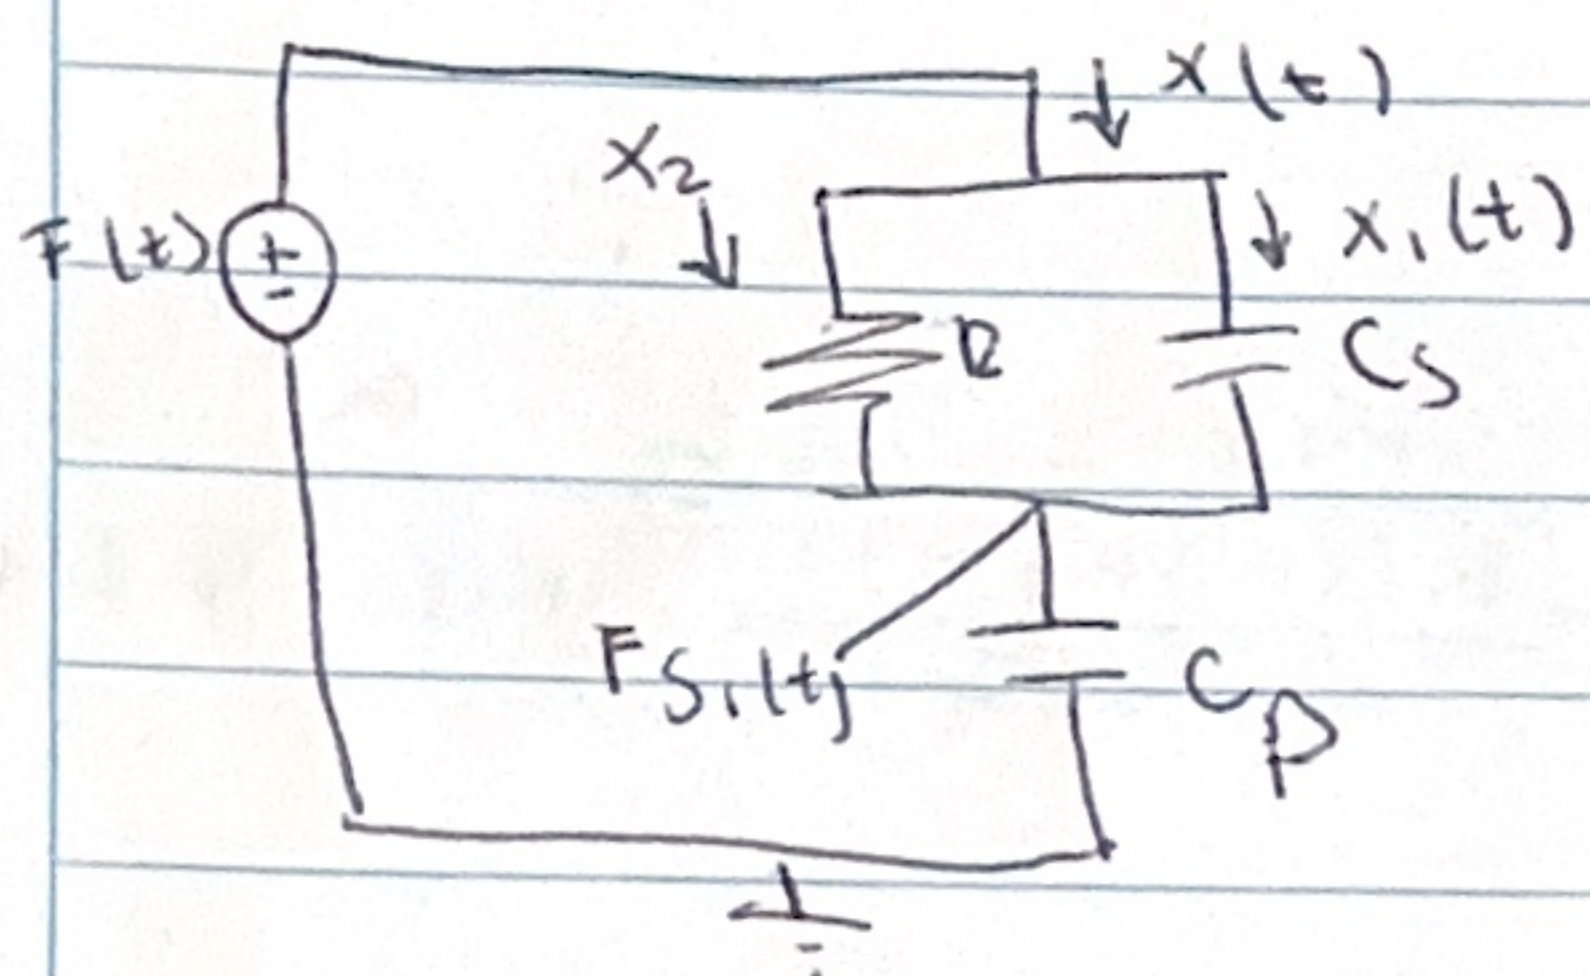 x(t)
x2
F(t)
+
-
x1(t)
R
Cs
Fs1(t)
Cp